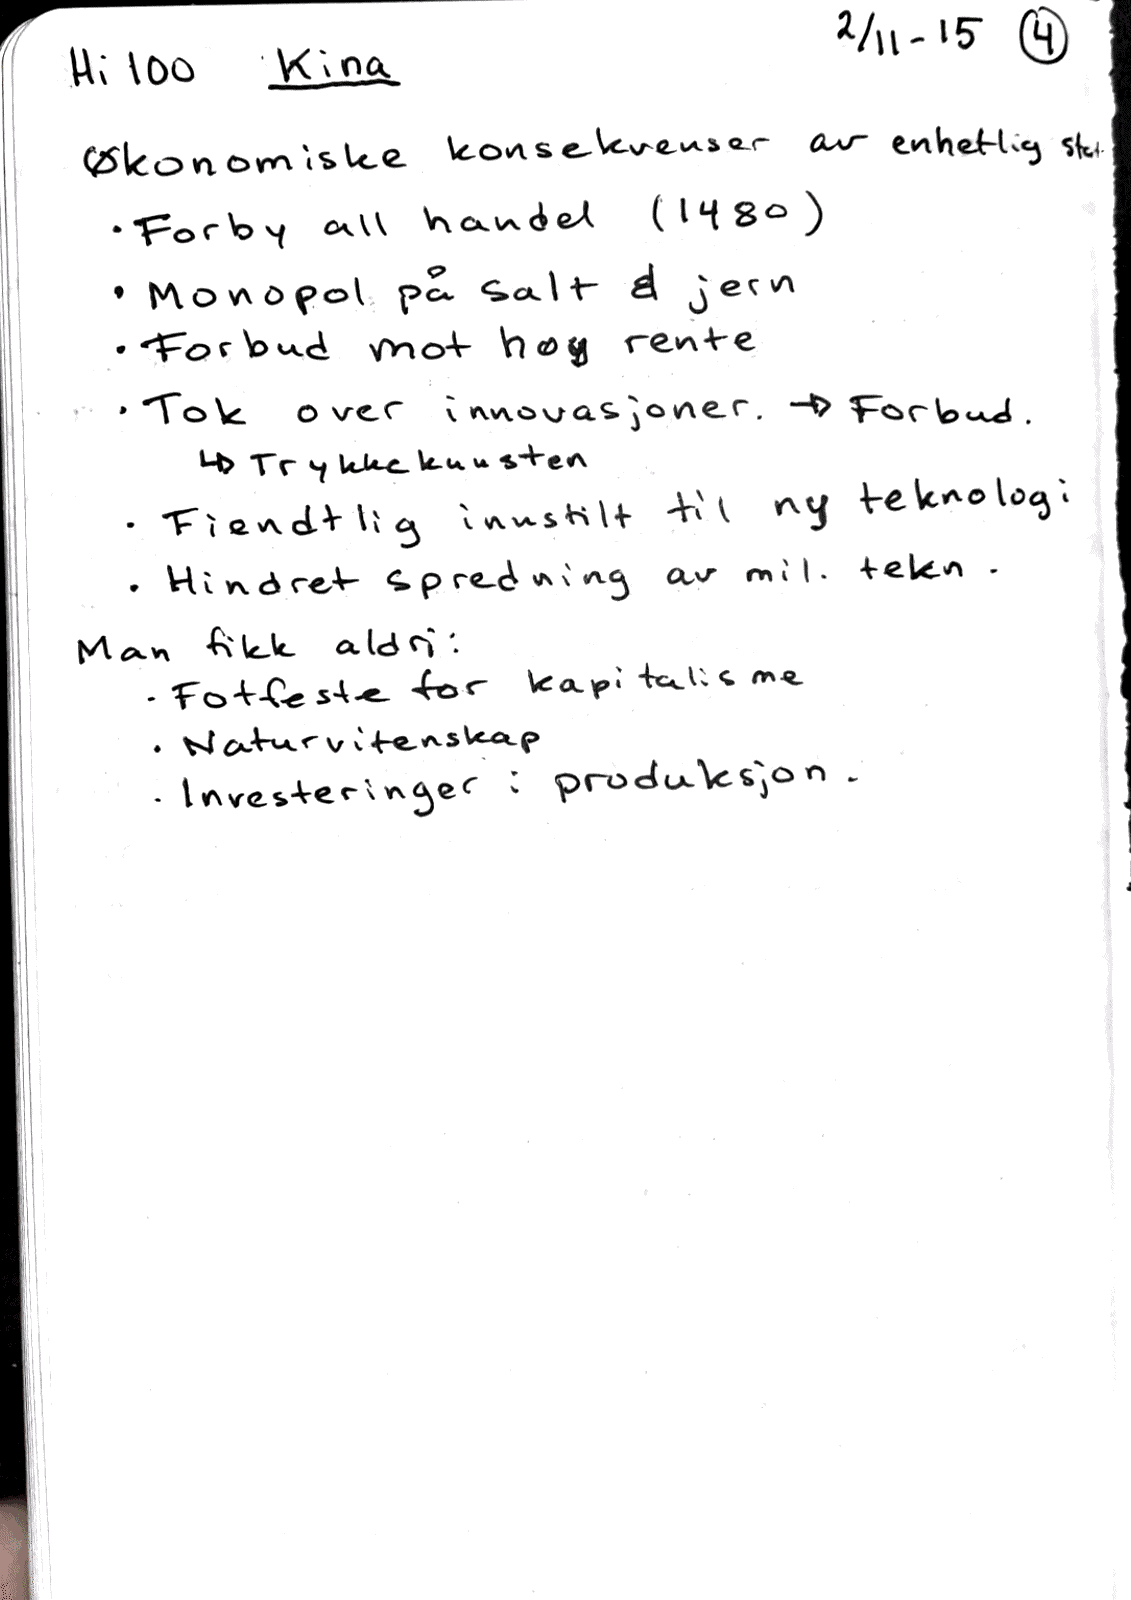 Hi 100 Kina 2/11-15 4
Økonomiske konsekvenser av enhetlig stat
• Forby all handel (1480)
• Monopol på salt & jern
• Forbud mot høy rente
• Tok over innovasjoner. → Forbud.
↳ Trykkekunsten
• Fiendtlig innstilt til ny teknologi
• Hindret spredning av mil. tekn.
Man fikk aldri:
• Fotfeste for kapitalisme
• Naturvitenskap
• Investeringer i produksjon.